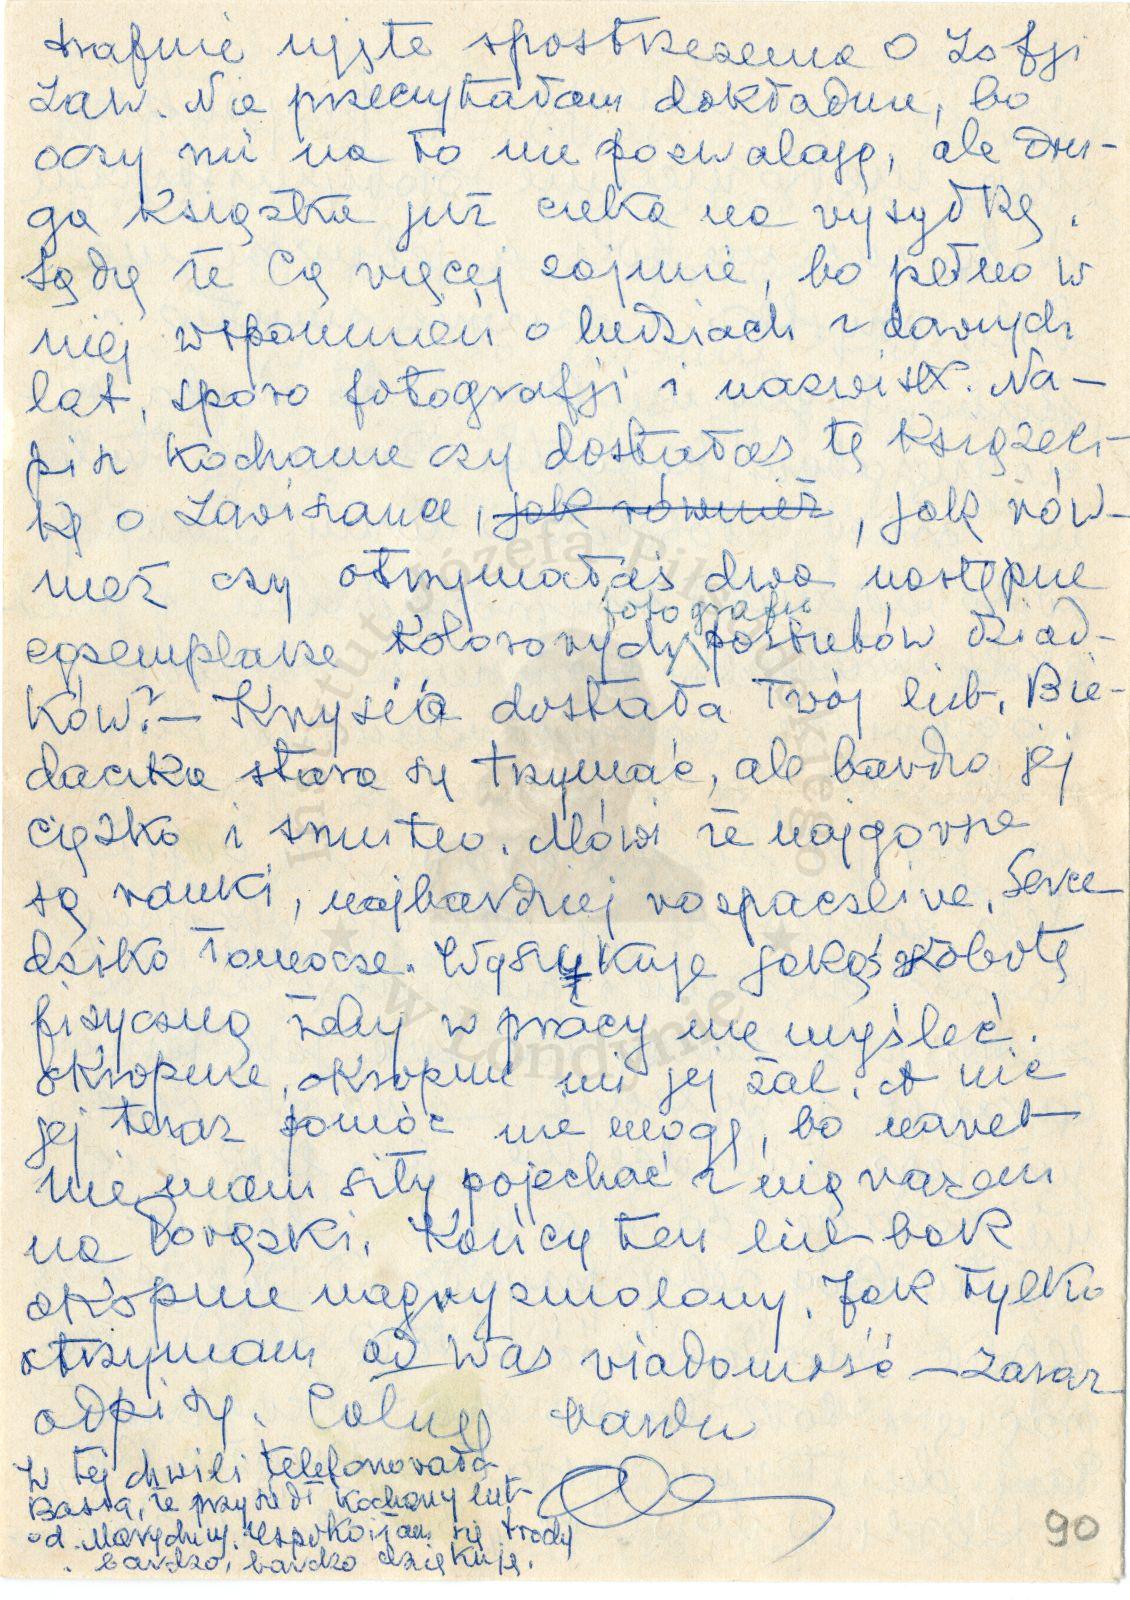 trafnie ujęte spostrzeżenia o Zofji
Zaw. Nie przeczytałam dokładnie, bo
oczy mi na to nie pozwalają, ale dru-
ga książka już czeka na wysyłkę.
Sądzę że Cię więcej zajmie, bo pełno w
niej wspomnień o ludziach z dawnych
lat, sporo fotografji i nazwisk. Na-
pisz Kochanie czy dostałaś tę książecz-
kę o Zawiszance, jak również, jak rów-
nież czy otrzymałaś dwa następne
fotografii
egzemplarze kolorowych portretów dziad-
ków? — Krysia dostała Twój list. Bie-
daczka stara się trzymać, ale bardzo jej
ciężko i smutno. Mówi że najgorsze
są ranki, najbardziej rozpaczliwe. Serce
dziko łomocze. Wyszukuje jakąś robotę
fizyczną żeby w pracy nie myśleć.
Okropnie, okropnie mi jej żal. A nic
jej teraz pomóc nie mogę, bo nawet
nie mam siły pojechać z nią razem
na Powązki. Kończę ten list bok
okropnie nagryzmolony. Jak tylko
otrzymam od Was wiadomość — zaraz
odpiszę. Całuję bardzo
W tej chwili telefonowała
Basia, że przyszedł kochany list
od Marychny. Uspokoiłam się trochę
bardzo, bardzo dziękuję.
90
Instytut Józefa Piłsudskiego
w Londynie